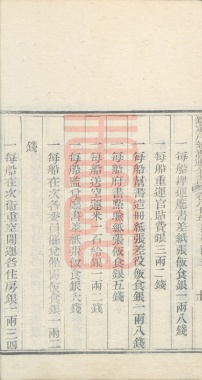 一每船押運廳書差紙張飯食銀一兩八錢
一每船重運官貼費銀三兩二錢
一每船幫書造冊紙張差役飯食銀一兩八錢
一每船府書點驗紙張飯食銀五錢
一每船送空運米一石折銀一兩二錢
一每船監兌廳書紙張飯食銀六錢
一每船在次各委員催兌備飯食銀一兩二
錢
一每船在次衛重空閒運各住房銀一兩二四